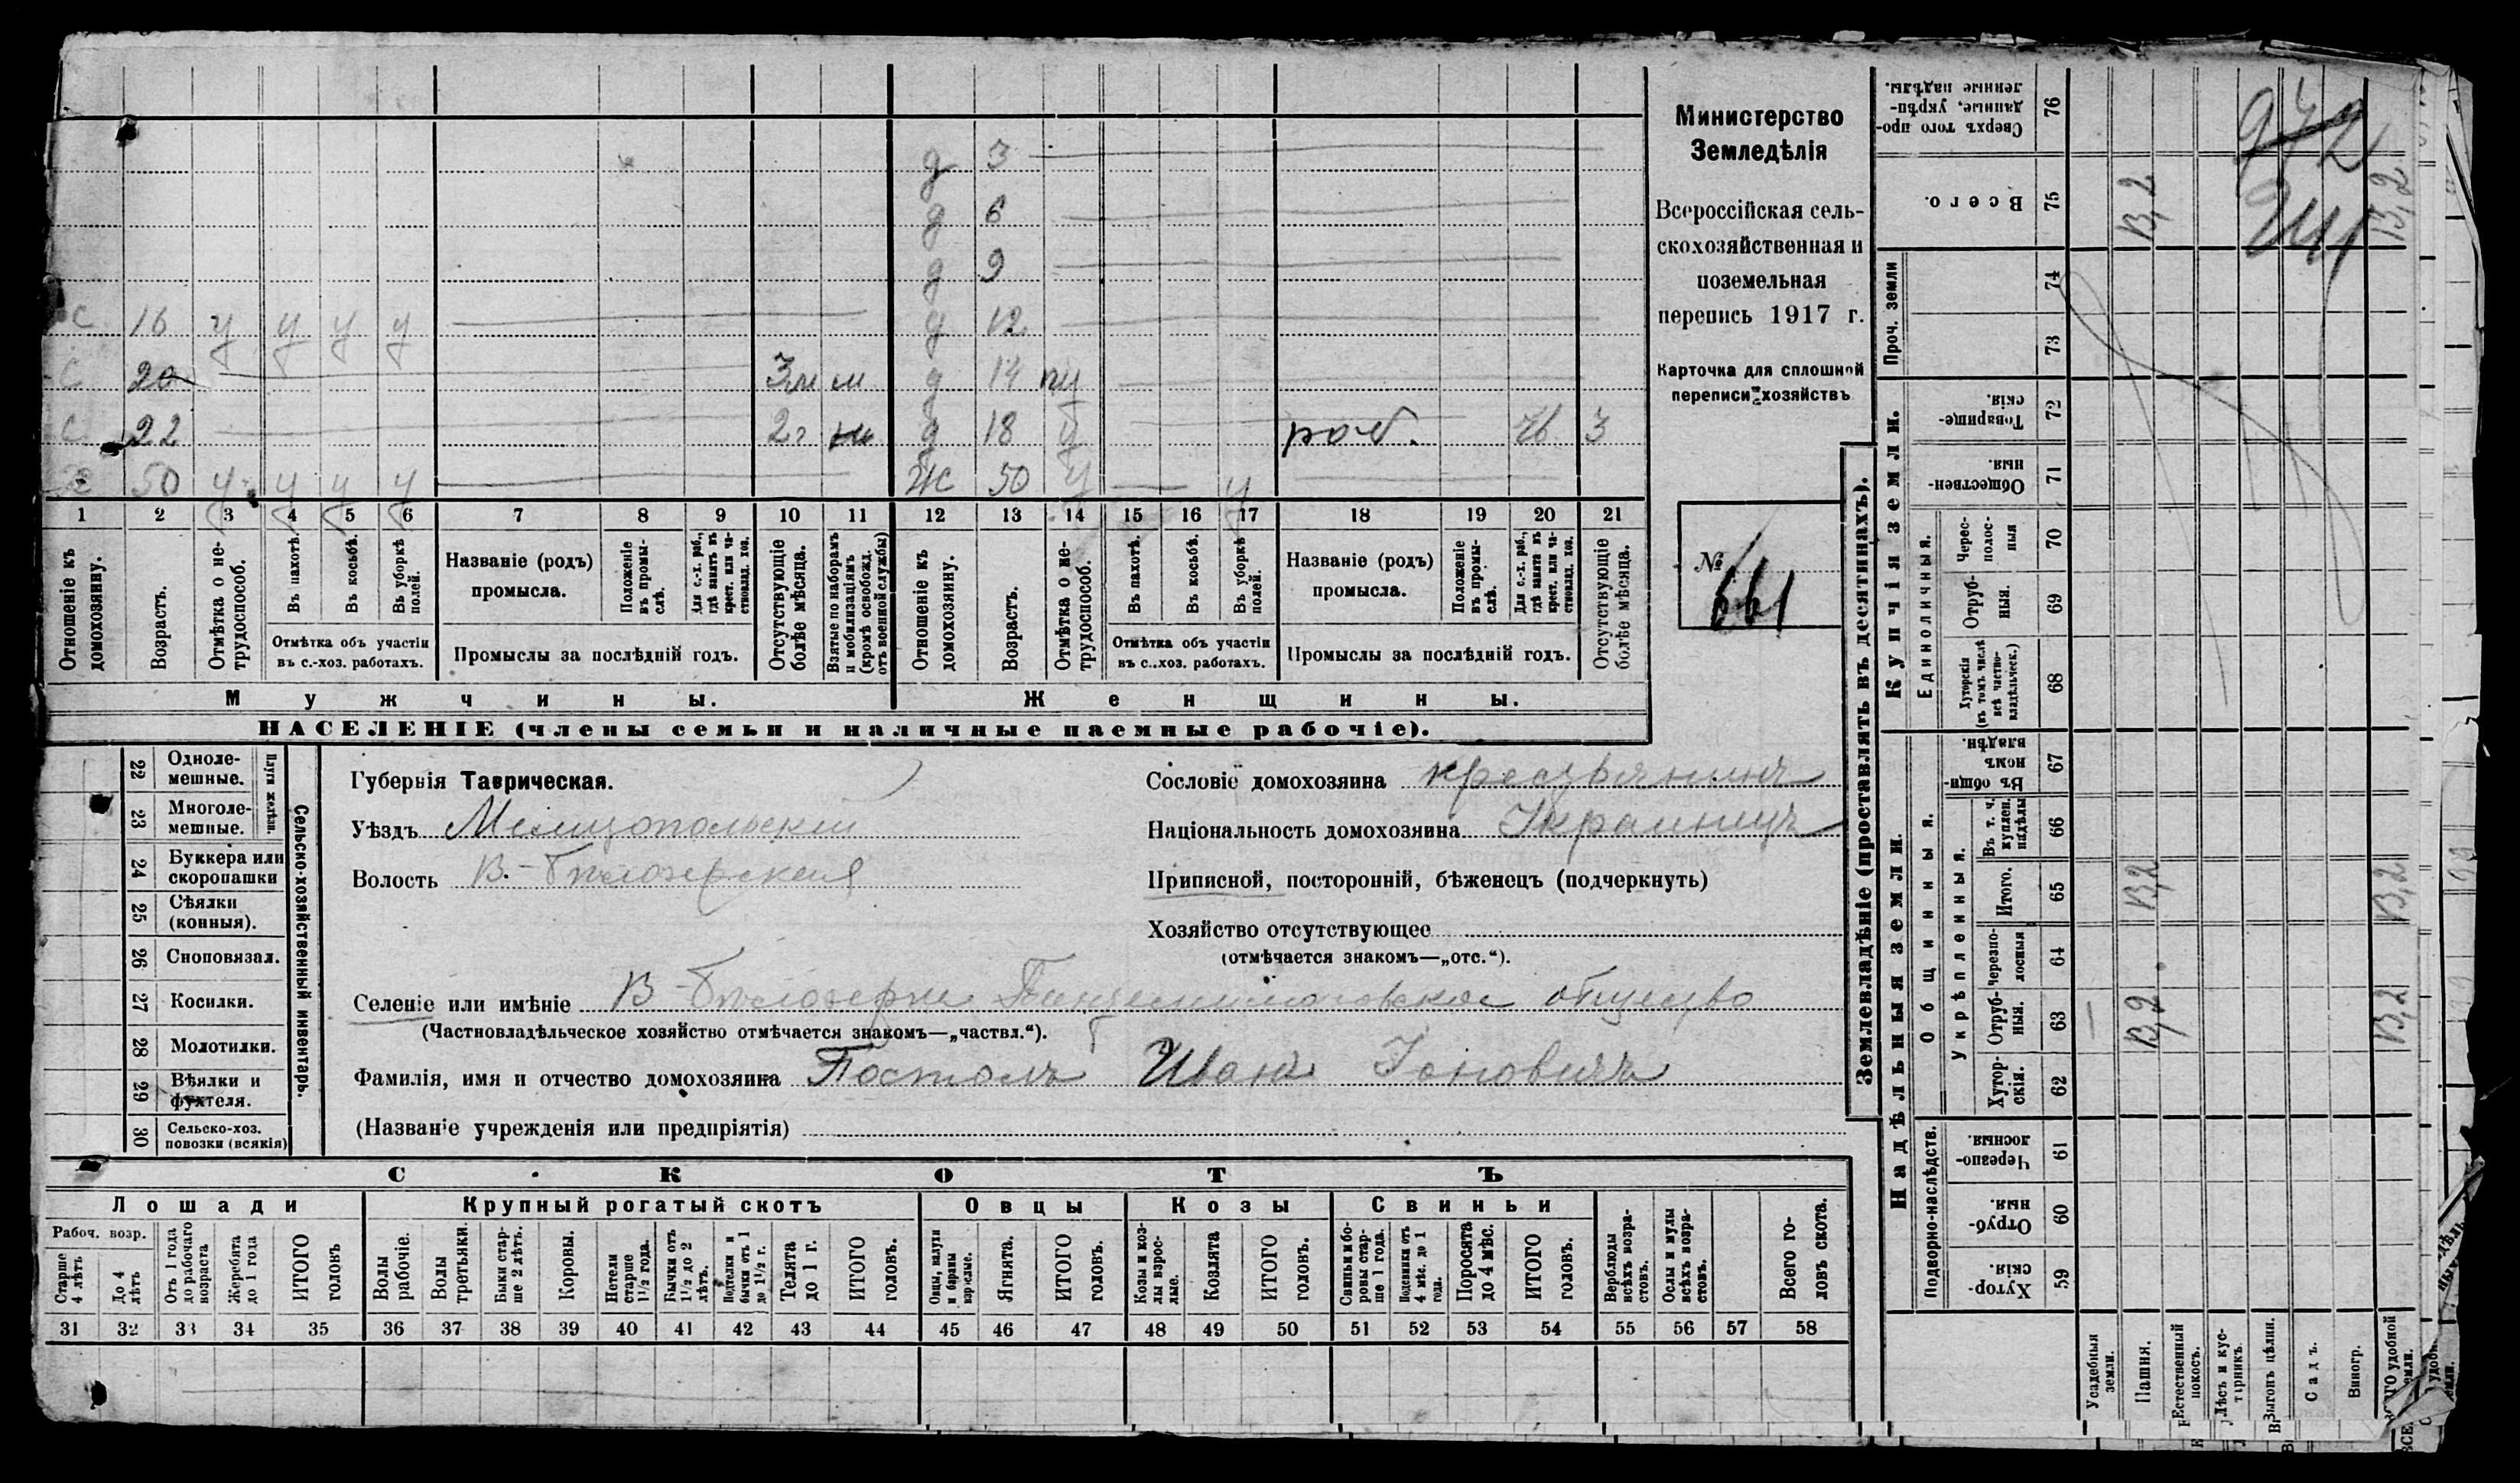 д 3
д 6
д 9
с 16 у у у у д 12
с 20 3м м д 14 пу
с 22 2г д 18 у раб. 3
50 у у у у ж 50 у у
1 2 3 4 5 6 7 8 9 10 11 12 13 14 15 16 17 18 19 20 21
Отношеніе къ домохозяину.
Возрастъ.
Отмѣтка о не-трудоспособ.
Въ пахотѣ.
Въ косьбѣ.
Въ уборкѣ полей.
Отмѣтка объ участіи
въ с.-хоз. работахъ.
Названіе (родъ)
промысла.
Положеніе въ промы-слѣ.
Для с.-х. раб., гдѣ занятъ въ крест. или ча-стновлад. хоз.
Промыслы за послѣдній годъ.
Отсутствующіе болѣе мѣсяца.
Взятые по наборамъ и мобилизаціямъ (кромѣ освобожд. отъ военной службы)
Отношеніе къ домохозяину.
Возрастъ.
Отмѣтка о не-трудоспособ.
Въ пахотѣ.
Въ косьбѣ.
Въ уборкѣ полей.
Отмѣтка объ участіи
въ с.-хоз. работахъ.
Названіе (родъ)
промысла.
Положеніе въ промы-слѣ.
Для с.-х. раб., гдѣ занятъ въ крест. или ча-стновлад. хоз.
Промыслы за послѣдній годъ.
Отсутствующіе болѣе мѣсяца.
Мужчины.
Женщины.
НАСЕЛЕНІЕ (члены семьи и наличные наемные рабочіе).
Министерство
Земледѣлія
Всероссійская сель-
скохозяйственная и
поземельная
перепись 1917 г.
Карточка для сплошной
переписи хозяйствъ
№
661
22 Одноле-мешные.
23 Многоле-мешные.
Плуги желѣзн.
24 Буккера или скоропашки
25 Сѣялки (конныя).
26 Сноповязал.
27 Косилки.
28 Молотилки.
29 Вѣялки и фухтеля.
30 Сельско-хоз. повозки (всякія)
Сельско-хозяйственный инвентарь.
Губернія Таврическая.
Уѣздъ Мелитопольскій
Волость В.-Бѣлозерская
Сословіе домохозяина крестьянинъ
Національность домохозяина Украинецъ
Приписной, посторонній, бѣженецъ (подчеркнуть)
Хозяйство отсутствующее
(отмѣчается знакомъ—„отс.“).
Селеніе или имѣніе В-Бѣлозерка общество
(Частновладѣльческое хозяйство отмѣчается знакомъ—„частвл.“).
Фамилія, имя и отчество домохозяина Постолъ Иванъ Іоновичъ
(Названіе учрежденія или предпріятія)
СКОТЪ
Лошади
Крупный рогатый скотъ
Овцы
Козы
Свиньи
Рабоч. возр.
Старше 4 лѣтъ
До 4 лѣтъ
Отъ 1 года до рабочаго возраста
Жеребята до 1 года
ИТОГО головъ
Волы рабочіе.
Волы третьяки.
Быки стар-ше 2 лѣтъ.
Коровы.
Нетели старше 1½ года.
Бычки отъ 1½ до 2 лѣтъ.
Подтелки и бычки отъ 1 до 1½ г.
Телята до 1 г.
ИТОГО головъ.
Овцы, валухи и бараны взрослые.
Ягнята.
ИТОГО головъ.
Козы и коз-лы взрос-лые.
Козлята
ИТОГО головъ.
Свиньи и бо-ровы стар-ше 1 года.
Подсвинки отъ 4 мѣс. до 1 года.
Поросята до 4 мѣс.
ИТОГО головъ.
Верблюды всѣхъ возра-стовъ.
Ослы и мулы всѣхъ возра-стовъ.
Всего го-ловъ скота.
31 32 33 34 35 36 37 38 39 40 41 42 43 44 45 46 47 48 49 50 51 52 53 54 55 56 57 58
Землевладѣніе (проставлять въ десятинахъ).
Надѣльныя земли.
Купчія земли.
Проч. земли
Подворно-наслѣдств.
Общинныя.
Укрѣпленныя.
Единоличныя.
Сверхъ того про-данные, укрѣп-ленные надѣлы. 76
Всего. 75
74
73
Товарище-скія. 72
Обществен-ныя. 71
Черес-полос-ныя 70
Отруб-ныя. 69
Хуторскія (въ томъ числѣ всѣ частно-владѣльческ.) 68
Въ общи-номъ владѣн. 67
Въ т. ч. куплен. надѣлы 66
Итого. 65
Черезпо-лосныя 64
Отруб-ныя. 63
Хутор-скія. 62
Черезпо-лосныя. 61
Отруб-ныя. 60
Хутор-скія. 59
Усадебныя земли.
Пашня.
Естественный покосъ.
Лѣсъ и кус-тарникъ.
Выгонъ цѣлин.
Садъ.
Виногр.